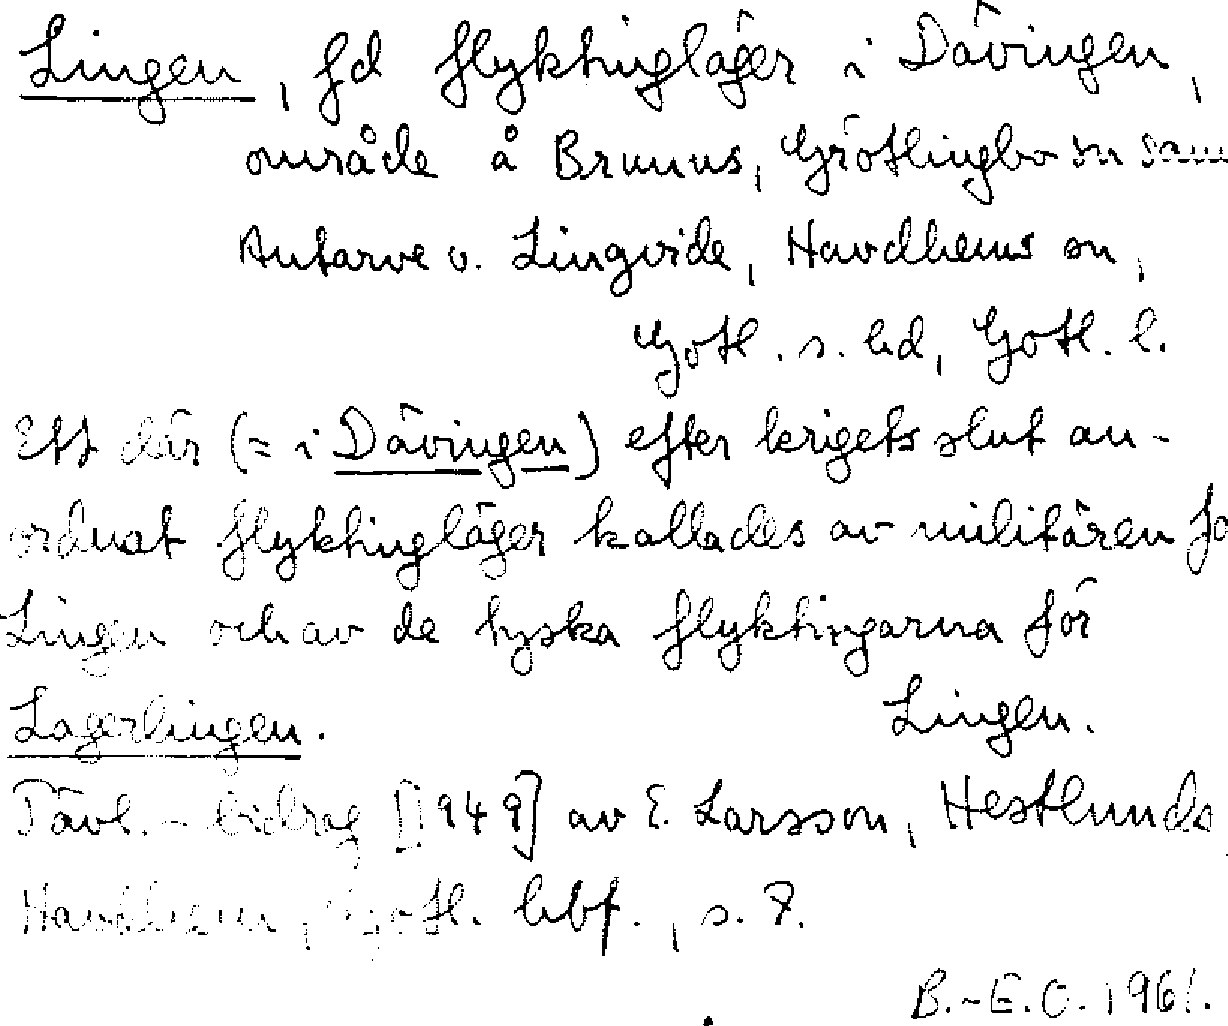 Lingen, fd flyktingläger i Dävingen,
område å Brunns, Grötlingbo sn sam
Antarve o. Lingvide, Havdhems sn,
Gotl. s. hd, Gotl. l.
Ett där (= i Dävingen) efter krigets slut an-
ordnat flyktingläger kallades av militären fö
Lingen och av de tyska flyktingarna för
Lagerlingen. Lingen.
Tävl.-bidrag [1949] av E. Larsson, Hestlunds
Havdhem, Gotl. hbf., s. 7.
B.-E.O. 1961.